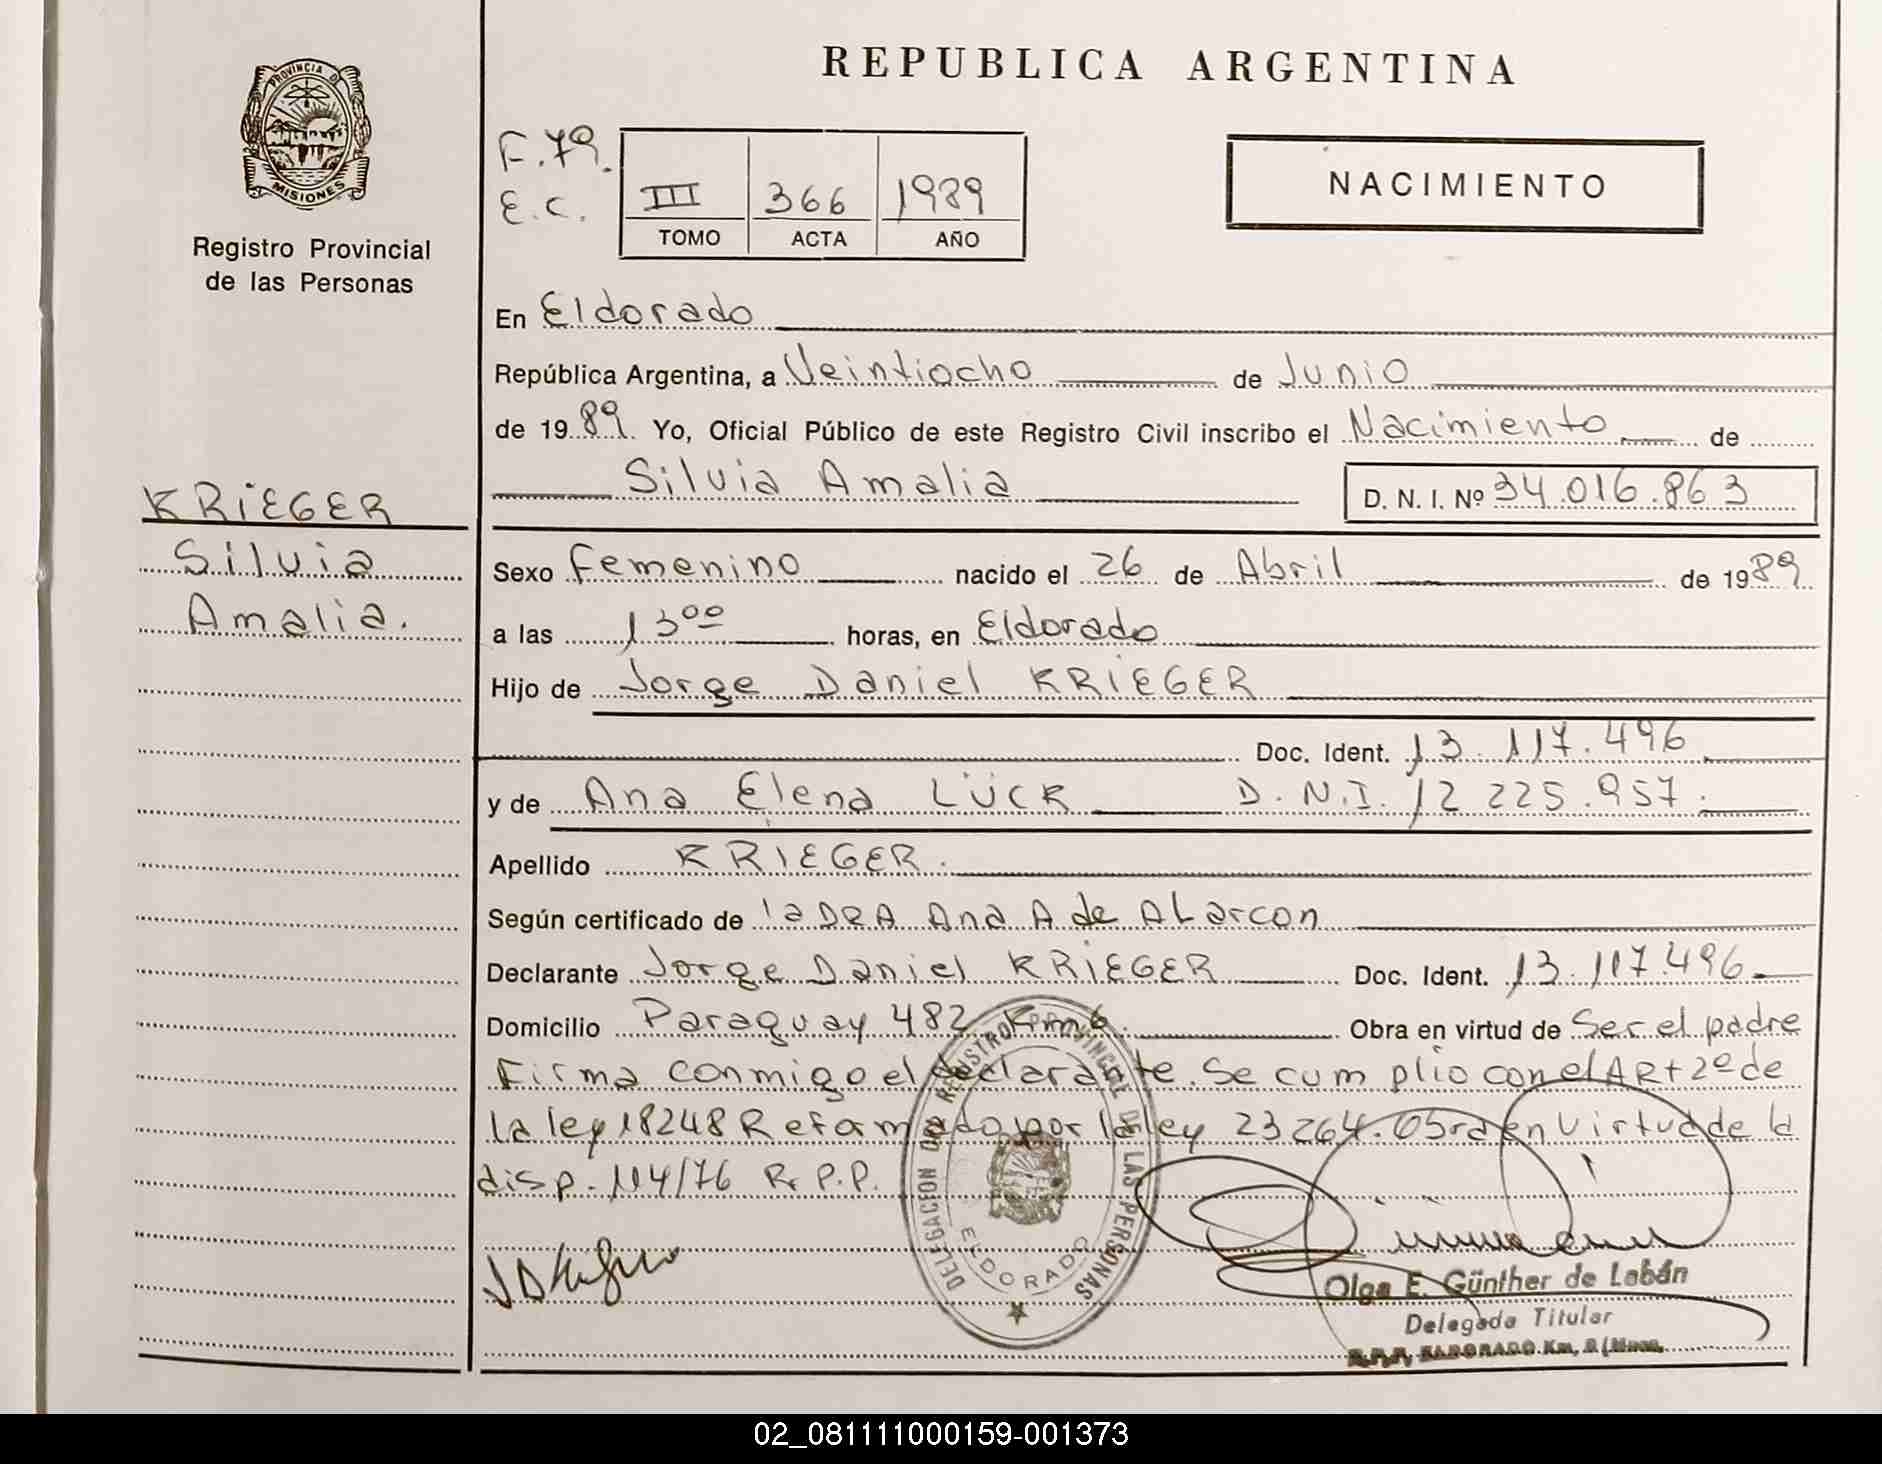 PROVINCIA D
MISIONES
Registro Provincial
de las Personas
KRIEGER
Silvia
Amalia.
REPUBLICA ARGENTINA
F.79.
E.C.
III 366 1989
TOMO ACTA AÑO
NACIMIENTO
En Eldorado
República Argentina, a Veintiocho de Junio
de 1989. Yo, Oficial Público de este Registro Civil inscribo el Nacimiento de
Silvia Amalia D. N. I. Nº 34.016.863
Sexo Femenino nacido el 26 de Abril de 1989
a las 13ºº horas, en Eldorado
Hijo de Jorge Daniel KRIEGER
Doc. Ident. 13.117.496
y de Ana Elena LÜCK D.N.I. 12 225.957.
Apellido KRIEGER.
Según certificado de la DRA Ana A de ALarcon
Declarante Jorge Daniel KRIEGER Doc. Ident. 13.117.496
Domicilio Paraguay 482 Km6. Obra en virtud de Ser el padre
Firma conmigo el declarante. Se cumplio con el ARt 2º de
la ley 18248 Reformado por la ley 23264. Obra en virtud de la
disp. 114/76 R.P.P.
DELEGACION DEL REGISTRO PROVINCIAL DE LAS PERSONAS
ELDORADO
Olga E. Günther de Labán
Delegada Titular
R.P.P. ELDORADO Km,
02_081111000159-001373